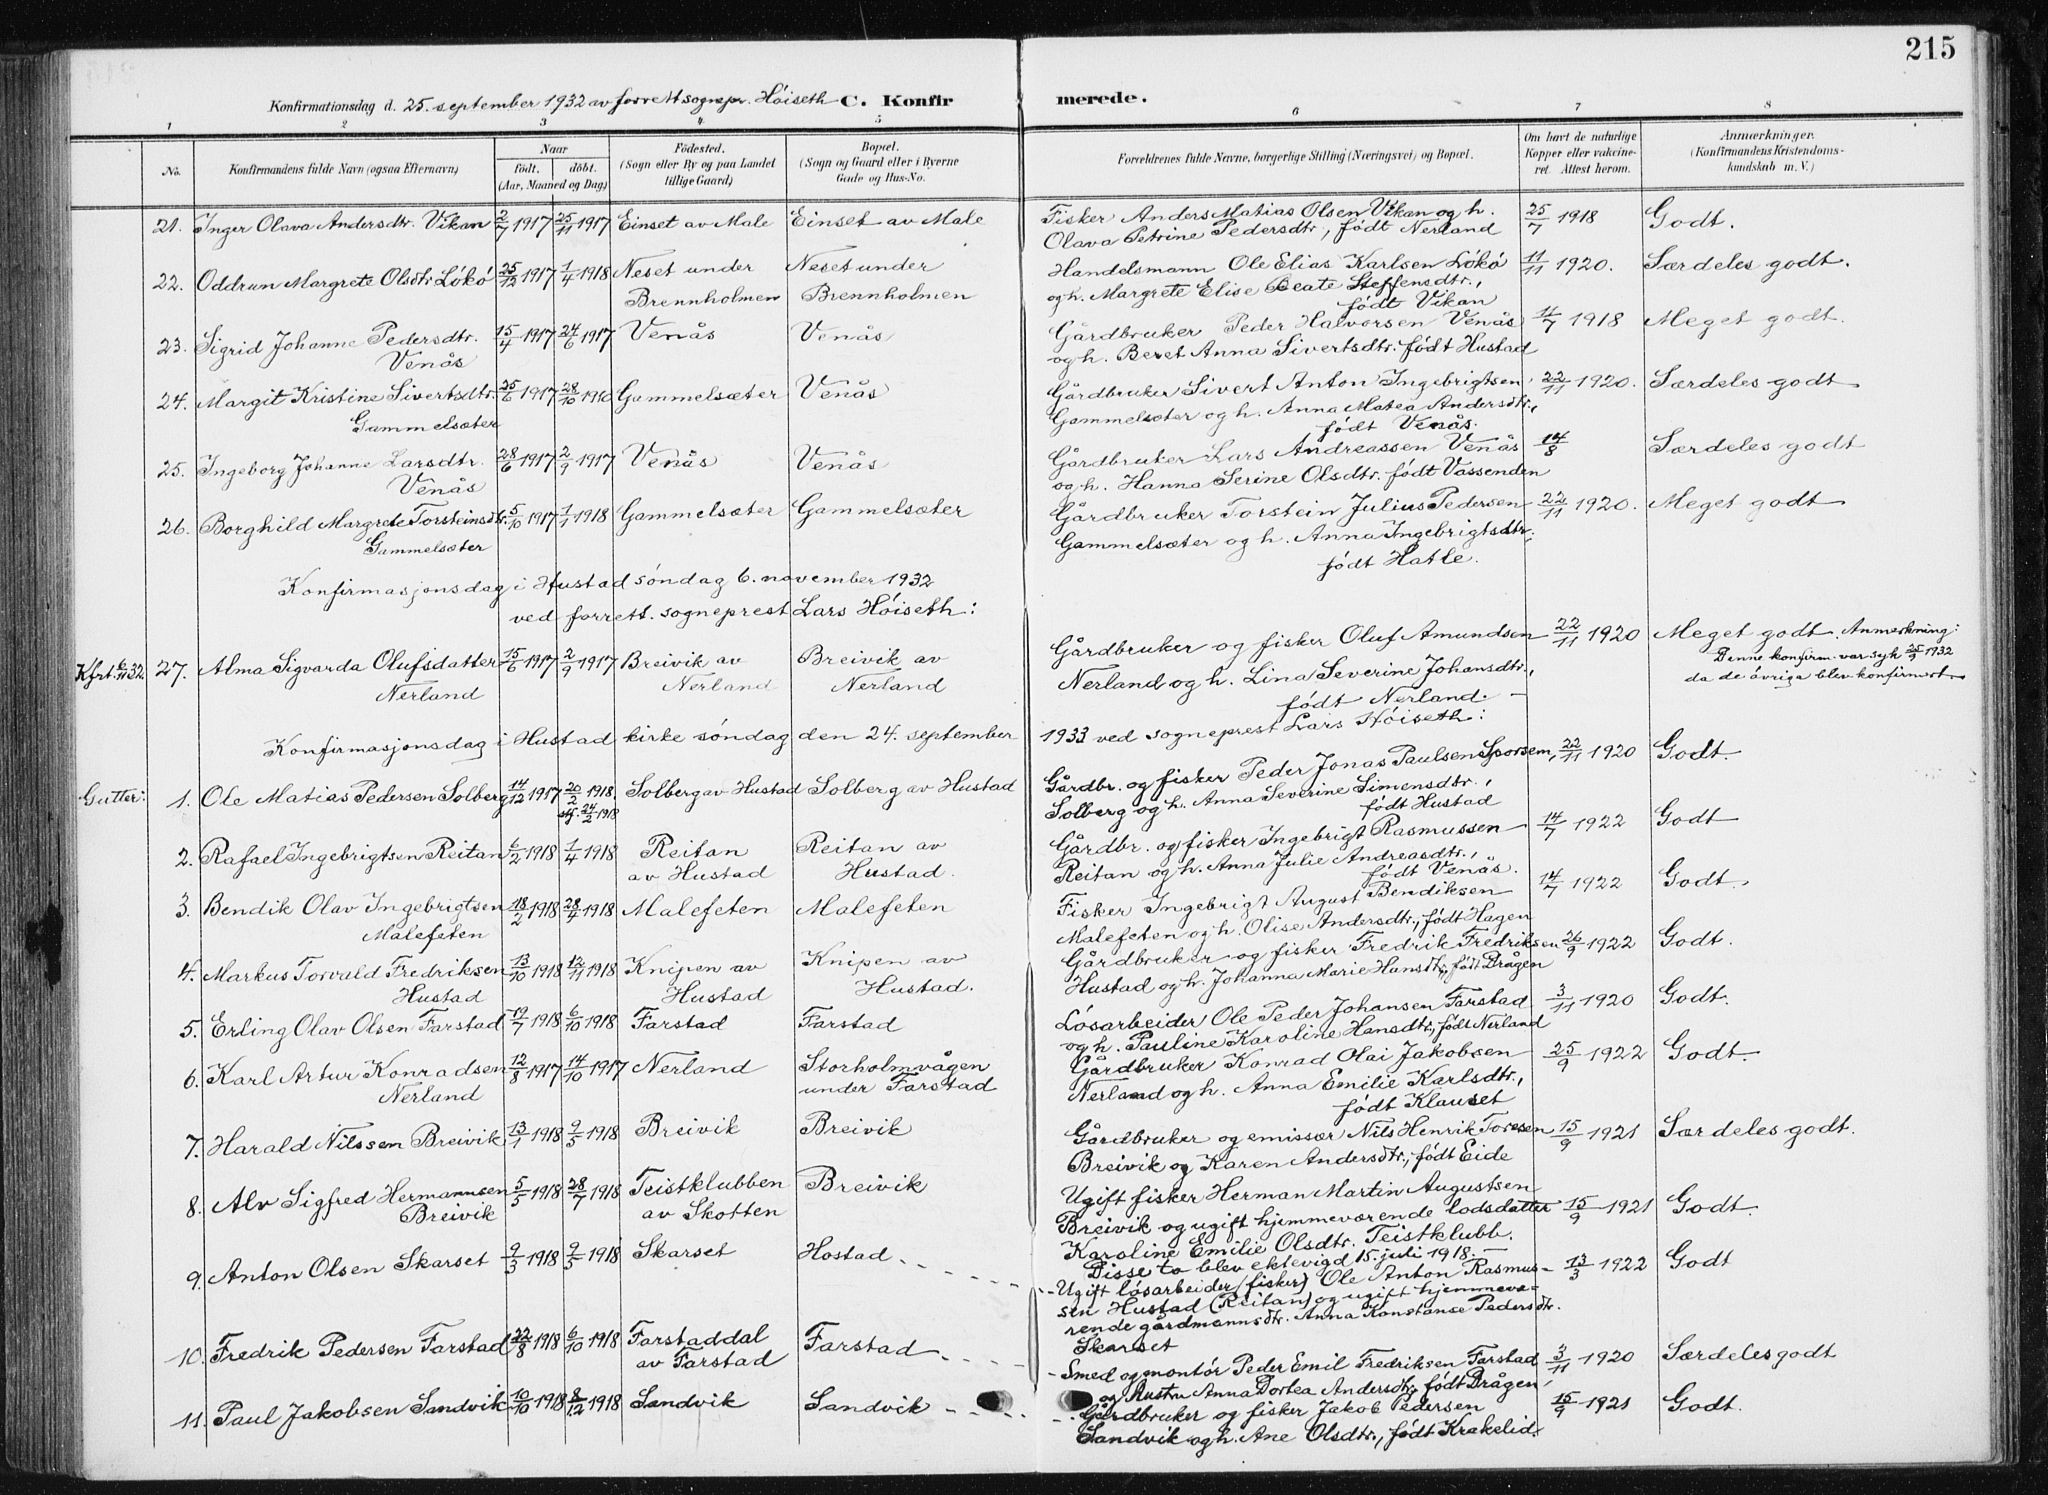 215
Konfirmationsdag d. 25. september 1932 av forrett sognepr. Höiseth C. Konfirmerede.
1 2 3 4 5 6 7 8
No. Konfirmandens fulde Navn (ogsaa Efternavn) Naar født. døbt. (Aar, Maaned og Dag) Fødested. (Sogn eller By og paa Landet tillige Gaard) Bopæl. (Sogn og Gaard eller i Byerne Gade og Hus-No. Forældrenes fulde Navne, borgerlige Stilling (Næringsvei) og Bopæl. Om havt de naturlige Kopper eller vakcineret. Attest herom. Anmærkninger. (Konfirmandens Kristendomskundskab m. V.)
21. Inger Olava Andersdtr. Vikan 2/7 1917 25/11 1917 Einset av Male Einset av Male Fisker Anders Matias Olsen Vikan og h. 25/7 1918 Godt.
Olava Petrine Pedersdtr, født Nerland
22. Oddrun Margrete Olsdtr Lökö 25/12 1917 1/4 1918 Neset under Neset under Handelsmann Ole Elias Karlsen Lökö 11/11 1920. Særdeles godt.
Brennholmen Brennholmen og h. Margrete Elise Beate Steffensdtr.,
født Vikan
23. Sigrid Johanne Pedersdtr. 15/4 1917 24/6 1917 Venås Venås Gårdbruker Peder Halvorsen Venås 11/7 1918 Meget godt.
Venås og h. Beret Anna Sivertsdtr. født Hustad
24. Margit Kristine Sivertsdtr. 25/6 1917 28/10 1910 Gammelsæter Venås Gårdbruker Sivert Anton Ingebrigtsen 22/11 1920. Særdeles godt
Gammelsæter Gammelsæter og h. Anna Matea Andersdtr.,
født Venås.
25. Ingeborg Johanne Larsdtr. 28/6 1917 2/9 1917 Venås Venås Gårdbruker Lars Andreassen Venås 14/8 Særdeles godt
Venås og h. Hanna Serine Olsdtr. født Vassenden
26. Borghild Margrete Torsteinsdtr. 5/10 1917 1/1 1918 Gammelsæter Gammelsæter Gårdbruker Torstein Julius Pedersen 22/11 1920. Meget godt
Gammelsæter Gammelsæter og h. Anna Ingebrigtsdtr,
født Hatle.
Konfirmasjonsdag i Hustad söndag 6. november 1932
ved forrett. sogneprest Lars Höiseth:
Kfrt. 6/11 32. 27. Alma Sigvarda Olufsdatter 15/6 1917 2/9 1917 Breivik av Breivik av Gårdbruker og fisker Oluf Amundsen 22/11 1920 Meget godt. Anmerkning:
Nerland Nerland Nerland Nerland og h. Lina Severine Johansdtr., Denne konfirm. var syk 25/9 1932
født Nerland. – da de övriga blev konfirmert.
Konfirmasjonsdag i Hustad kirke söndag den 24. september 1933 ved sogneprest Lars Höiseth:
Gutter: 1. Ole Matias Pedersen Solberg 14/12 1917 20/2 1918 Solberg av Hustad Solberg av Hustad Gårdbr. og fisker Peder Jonas Paulsen Sporsem, 22/11 1920 Godt.
24/2 1918 Solberg og h. Anna Severine Simensdtr.,
født Hustad
2. Rafael Ingebrigtsen Reitan 6/2 1918 1/4 1918 Reitan Reitan av Gårdbr. og fisker Ingebrigt Rasmussen 14/7 1922 Godt
av Hustad Hustad. Reitan og h. Anna Julie Andreasdtr.,
født Venås.
3. Bendik Olav Ingebrigtsen 18/2 1918 28/4 1918 Malefeten Malefeten Fisker Ingebrigt August Bendiksen 14/7 1922 Godt.
Malefeten Malefeten og h. Olise Andersdtr., født Hagen
4. Markus Torvald Fredriksen 13/10 1918 12/11 1918 Knipen av Knipen av Gårdbruker og fisker Fredrik Fredriksen 26/9 1922 Godt.
Hustad Hustad Hustad. Hustad og h. Johanna Marie Hansdtr., født Drågen
5. Erling Olav Olsen Farstad 19/7 1918 6/10 1918 Farstad Farstad Lösarbeider Ole Peder Johansen Farstad 3/11 1920 Godt.
og h. Pauline Karoline Hansdtr., født Nerland
6. Karl Artur Konradsen 12/8 1917 14/10 1917 Nerland Storholmvågen Gårdbruker Konrad Olai Jakobsen 25/9 1922 Godt.
Nerland under Farstad Nerland og h. Anna Emilie Karlsdtr.,
født Klauset
7. Harald Nilssen Breivik 13/1 1918 9/5 1918 Breivik Breivik Gårdbruker og emissær Nils Henrik Toresen 15/9 1921 Særdeles godt.
Breivik og Karen Andersdtr., født Eide
8. Alv Sigfred Hermannsen 5/5 1918 28/7 1918 Teistklubben Breivik Ugift fisker Herman Martin Augustsen
Breivik av Skotten Breivik og ugift hjemmeværende lodsdatter 15/9 1921 Godt.
Karoline Emilie Olsdtr. Teistklubb.
Disse to blev ektevigd 15. juli 1918. –
9. Anton Olsen Skarset 9/3 1918 9/5 1918 Skarset Hostad Ugift lösarbeider (fisker) Ole Anton Rasmus- 13/3 1922 Godt
sen Hustad (Reitan) og ugift hjemmevæ-
rende gårdmannsdtr. Anna Konstanse Pedersdtr.
Skarset
10. Fredrik Pedersen Farstad 22/8 1918 6/10 1918 Farstaddal Farstad Smed og montör Peder Emil Fredriksen Farstad 3/11 1920 Særdeles godt
av Farstad og hustru Anna Dortea Andersdtr., født Drågen,
11. Paul Jakobsen Sandvik 10/10 1918 8/12 1918 Sandvik Sandvik Gårdbruker og fisker Jakob Pedersen 15/9 1921 Godt.
Sandvik og h. Ane Olsdtr., født Krakelid.